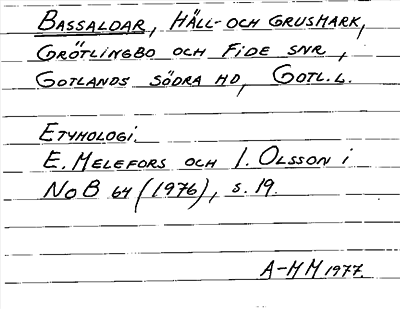 BASSALDAR, HÄLL- OCH GRUSMARK,
GRÖTLINGBO OCH FIDE SNR,
GOTLANDS SÖDRA HD, GOTL.L.
ETYMOLOGI.
E. MELEFORS OCH I. OLSSON i
NoB 64 (1976), s. 19.
A-MM 1977.